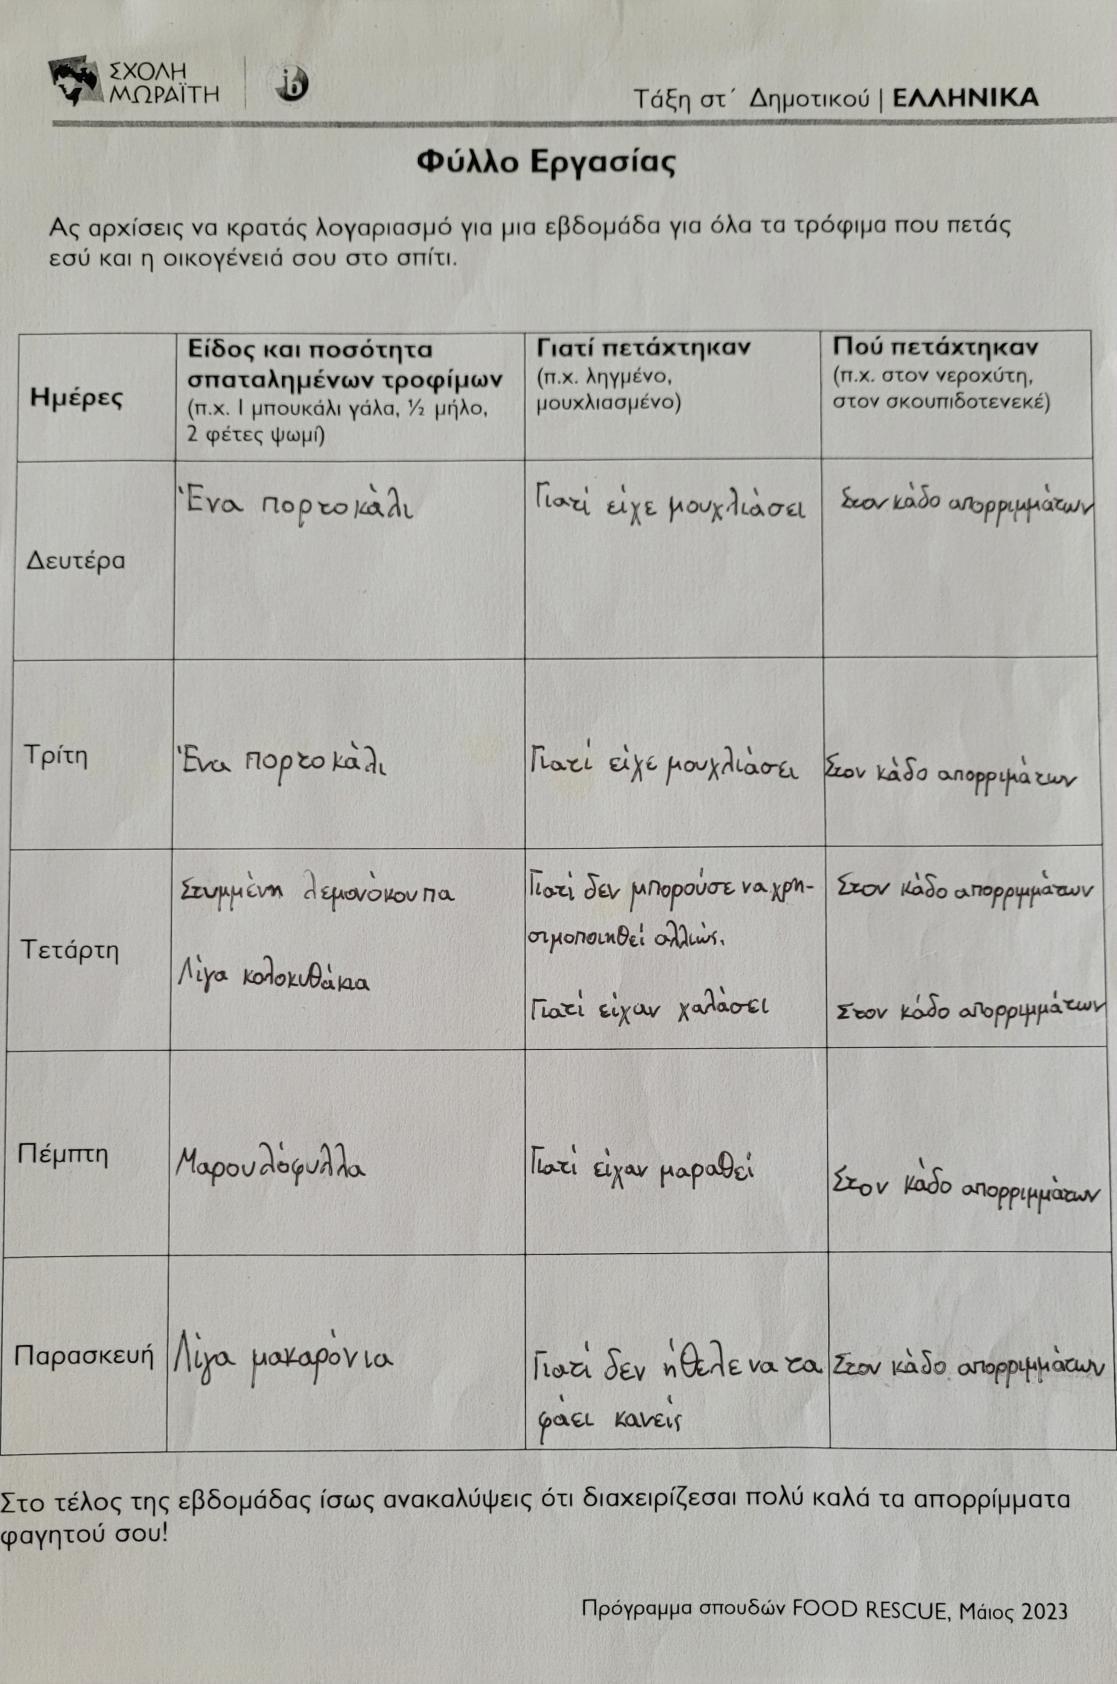 ΣΧΟΛΗ
ΜΩΡΑΪΤΗ
ib
Τάξη στ΄ Δημοτικού | ΕΛΛΗΝΙΚΑ
Φύλλο Εργασίας
Ας αρχίσεις να κρατάς λογαριασμό για μια εβδομάδα για όλα τα τρόφιμα που πετάς
εσύ και η οικογένειά σου στο σπίτι.
Ημέρες
Είδος και ποσότητα
σπαταλημένων τροφίμων
(π.χ. 1 μπουκάλι γάλα, ½ μήλο,
2 φέτες ψωμί)
Γιατί πετάχτηκαν
(π.χ. ληγμένο,
μουχλιασμένο)
Πού πετάχτηκαν
(π.χ. στον νεροχύτη,
στον σκουπιδοτενεκέ)
Δευτέρα
Ένα πορτοκάλι
Γιατί είχε μουχλιάσει
Στον κάδο απορριμμάτων
Τρίτη
Ένα πορτοκάλι
Γιατί είχε μουχλιάσει
Στον κάδο απορριμάτων
Τετάρτη
Στυμμένη λεμονόκουπα
Λίγα κολοκυθάκια
Γιατί δεν μπορούσε να χρη-
σιμοποιηθεί αλλιώς.
Γιατί είχαν χαλάσει
Στον κάδο απορριμμάτων
Στον κάδο απορριμμάτων
Πέμπτη
Μαρουλόφυλλα
Γιατί είχαν μαραθεί
Στον κάδο απορριμμάτων
Παρασκευή
Λίγα μακαρόνια
Γιατί δεν ήθελε να τα
φάει κανείς
Στον κάδο απορριμμάτων
Στο τέλος της εβδομάδας ίσως ανακαλύψεις ότι διαχειρίζεσαι πολύ καλά τα απορρίμματα
φαγητού σου!
Πρόγραμμα σπουδών FOOD RESCUE, Μάιος 2023